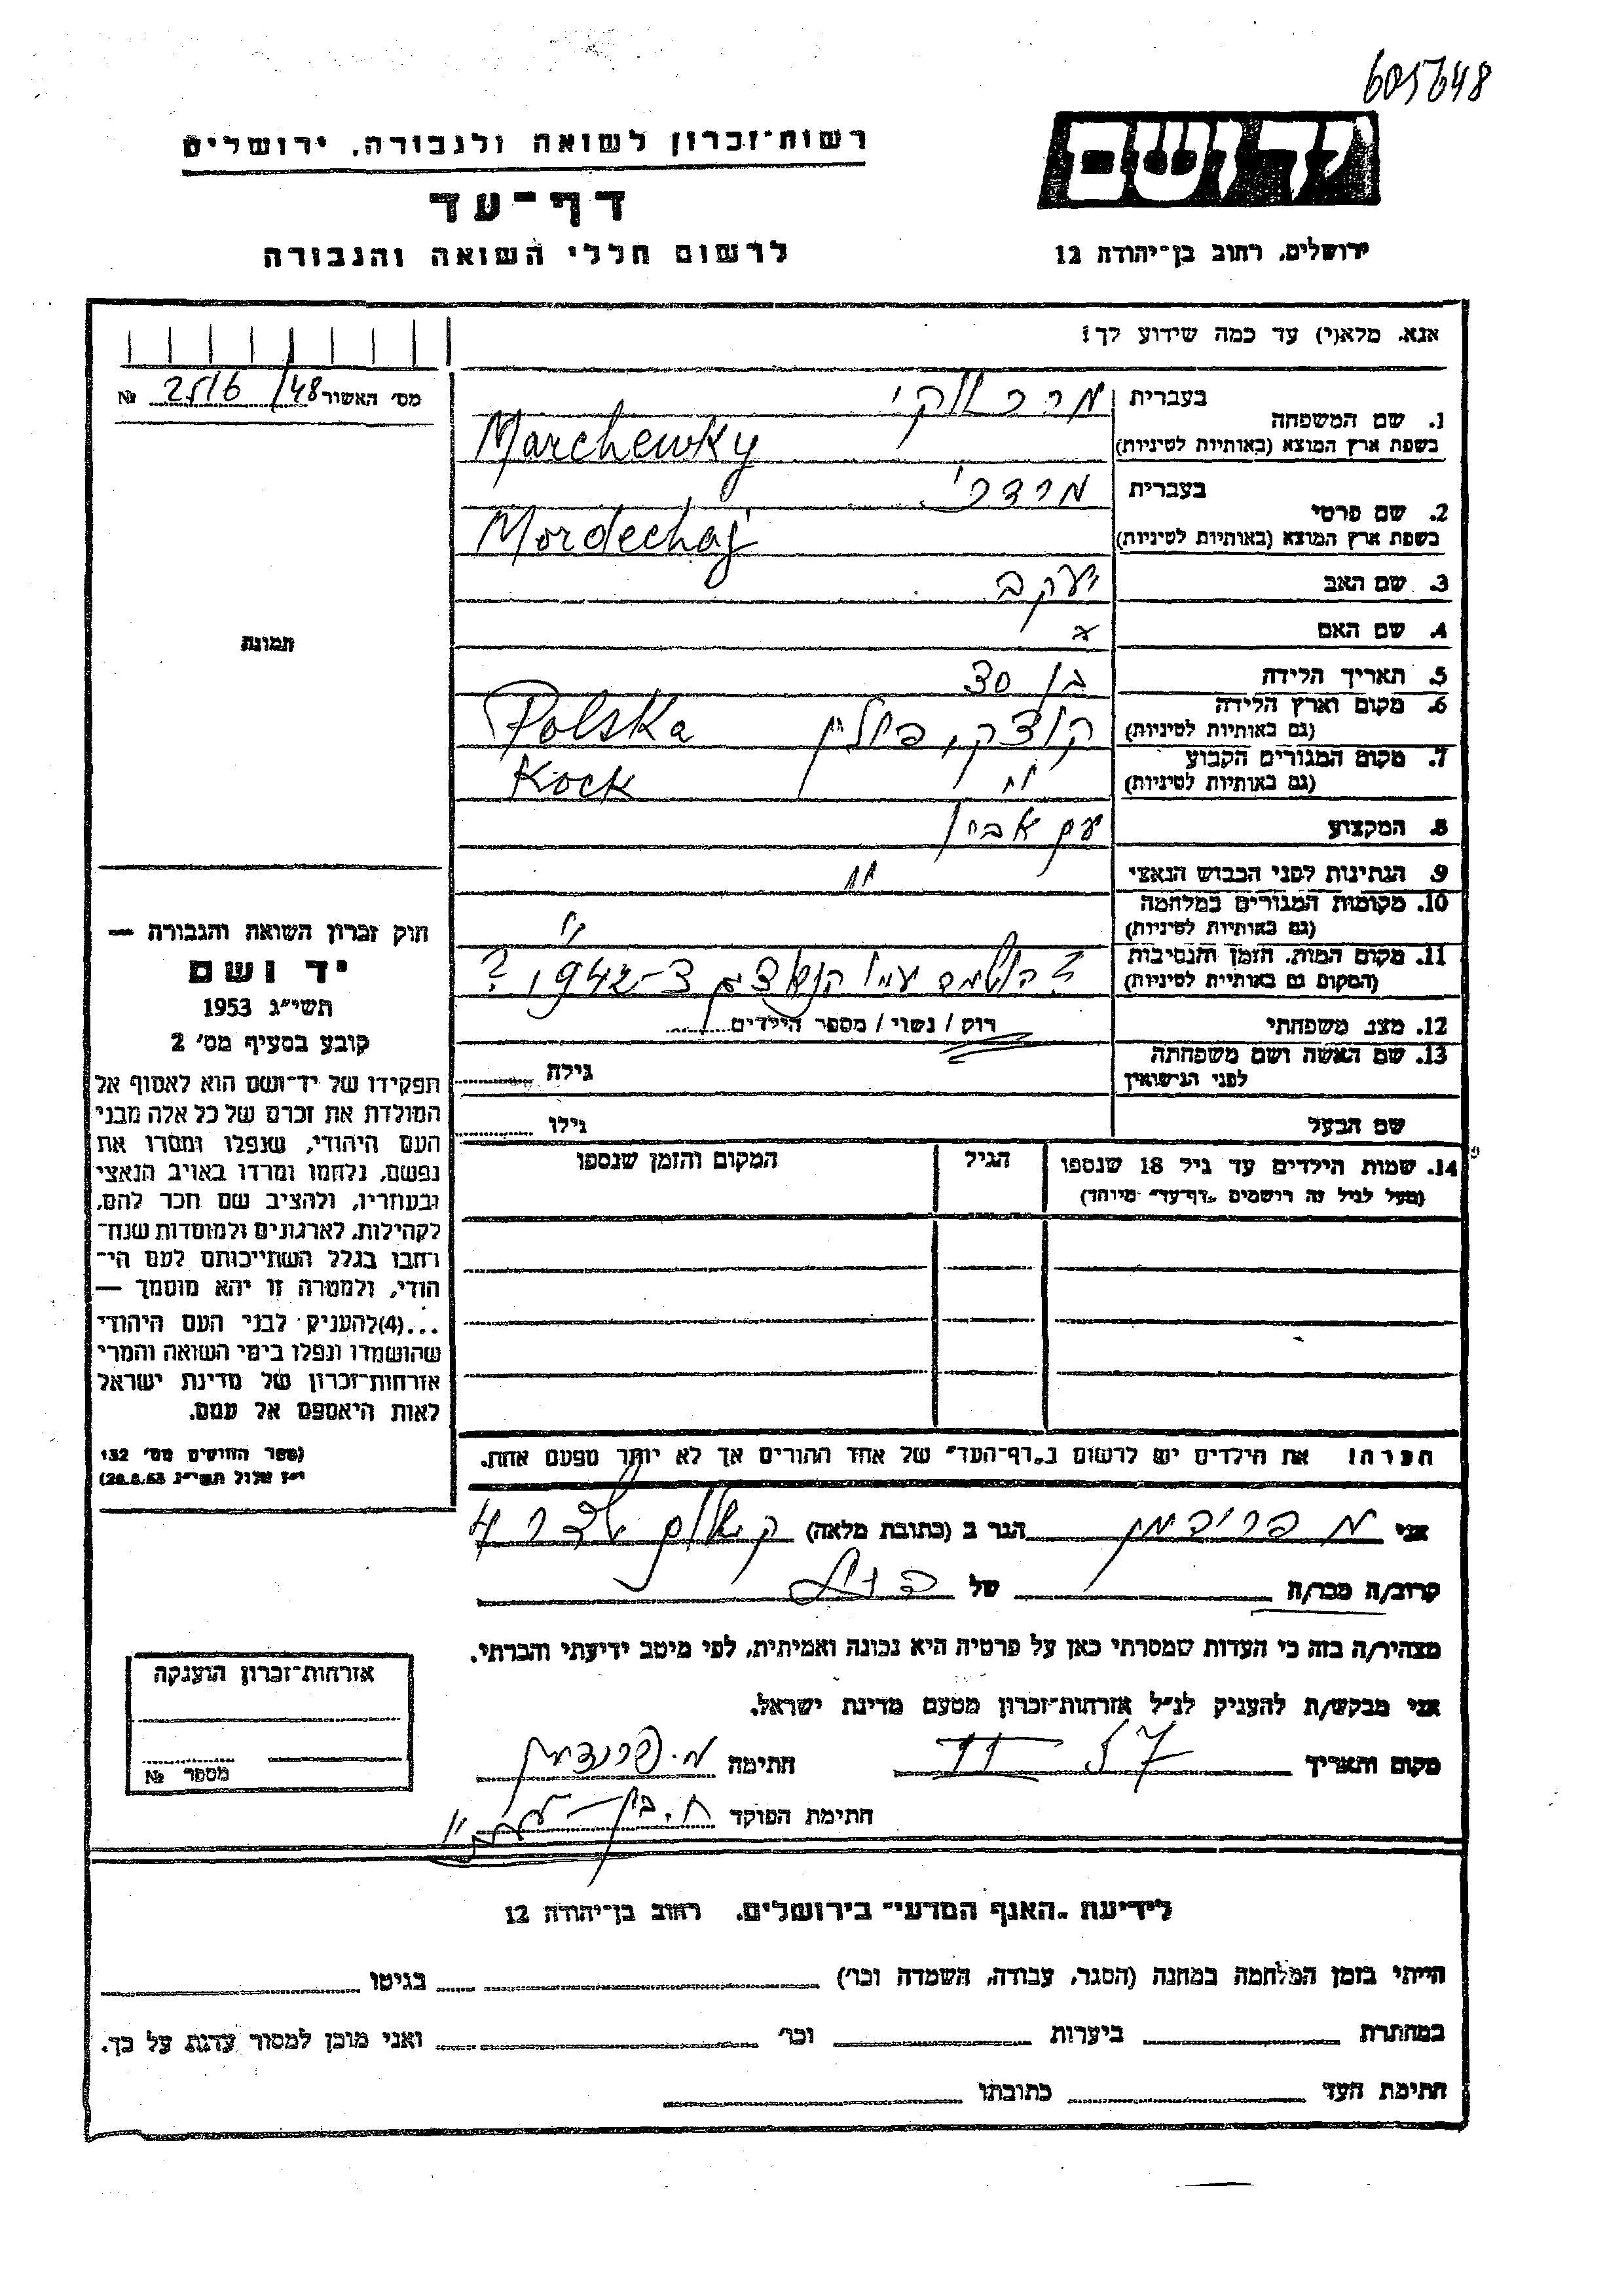 605648
רשות־זכרון לשואה ולגבורה, ירושלים
יד ושם
דף־עד
לרשום חללי השואה והגבורה
ירושלים, רחוב בן־יהודה 12
אנא, מלא(י) עד כמה שידוע לך!
מס' האשור 2516/48 №
1. שם המשפחה
בעברית
בשפת ארץ המוצא (באותיות לטיניות)
Marchewky
2. שם פרטי
בעברית מרדכי
בשפת ארץ המוצא (באותיות לטיניות)
Mordechaj
3. שם האב יעקב
4. שם האם
תמונה
5. תאריך הלידה בן 30
6. מקום וארץ הלידה
(גם באותיות לטיניות)
קוצק, פולין Polska
7. מקום המגורים הקבוע
(גם באותיות לטיניות)
" Kock
8. המקצוע עם אביו
9. הנתינות לפני הכבוש הנאצי "
10. מקומות המגורים במלחמה
(גם באותיות לטיניות)
"
11. מקום המות, הזמן והנסיבות
(המקום גם באותיות לטיניות)
? 1942 ?
12. מצב משפחתי רוק / נשוי / מספר הילדים
13. שם האשה ושם משפחתה
לפני הנישואין
גילה
שם הבעל גילו
14. שמות הילדים עד גיל 18 שנספו
(מעל לגיל זה רושמים "דף־עד" מיוחד)
הגיל
המקום והזמן שנספו
חוק זכרון השואה והגבורה —
יד ושם
תשי"ג 1953
קובע בסעיף מס' 2
תפקידו של יד־ושם הוא לאסוף אל
המולדת את זכרם של כל אלה מבני
העם היהודי, שנפלו ומסרו את
נפשם, נלחמו ומרדו באויב הנאצי
ובעוזריו, ולהציב שם וזכר להם,
לקהילות, לארגונים ולמוסדות שנח־
רבו בגלל השתייכותם לעם הי־
הודי, ולמטרה זו יהא מוסמך —
...(4)להעניק לבני העם היהודי
שהושמדו ונפלו בימי השואה והמרי
אזרחות־זכרון של מדינת ישראל
לאות היאספם אל עמם.
(ספר החוקים מס' 132
י"ז אלול תשי"ג 28.8.53)
הערה! את הילדים יש לרשום ב"דף־העד" של אחד ההורים אך לא יותר מפעם אחת.
אני מ פרידמן הגר ב (כתובת מלאה) 4
קרוב/ה מכר/ה של
מצהיר/ה בזה כי העדות שמסרתי כאן על פרטיה היא נכונה ואמיתית, לפי מיטב ידיעתי והכרתי.
אני מבקש/ת להעניק לנ"ל אזרחות־זכרון מטעם מדינת ישראל.
מקום ותאריך II 57 חתימה מ. פרידמן
חתימת הפוקד
אזרחות־זכרון הוענקה
מספר №
לידיעת "האגף המדעי" בירושלים, רחוב בן־יהודה 12
הייתי בזמן המלחמה במחנה (הסגר, עבודה, השמדה וכו') בגיטו
במחתרת ביערות וכו' ואני מוכן למסור עדות על כך.
חתימת העד כתובתו